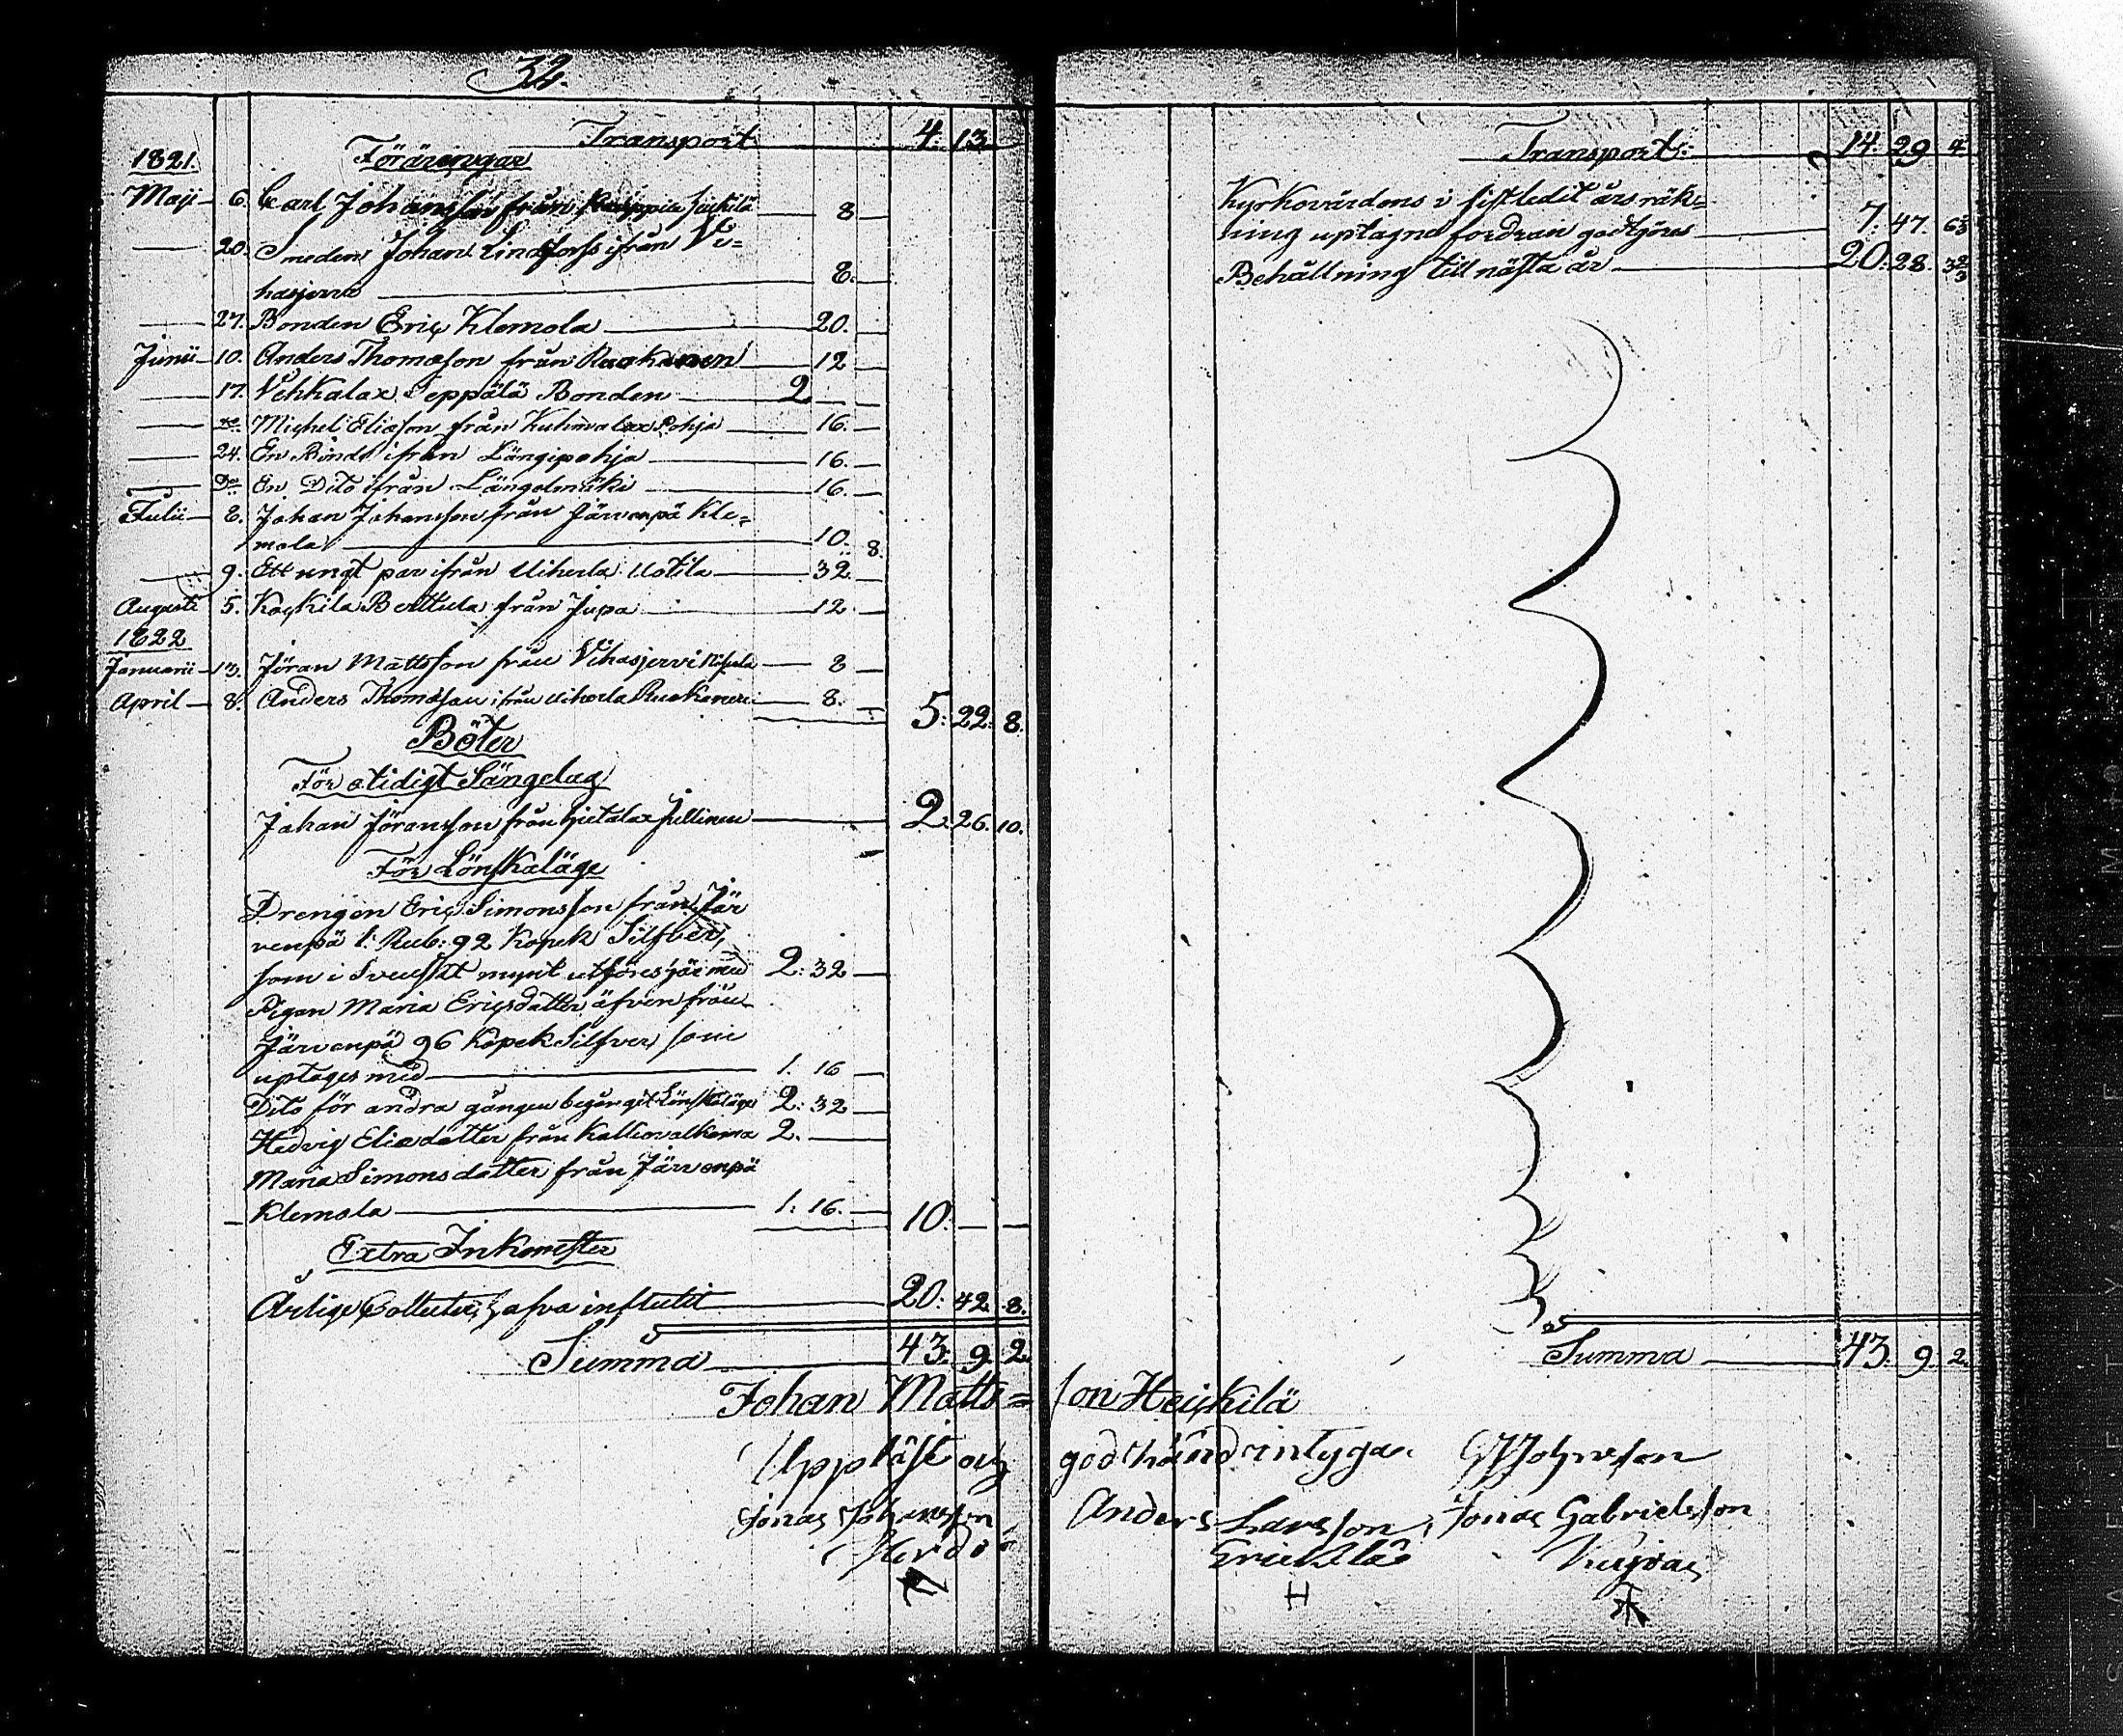 32.
Transport 4. 13.
1821. Föräringar
Maji 6. Carl Johansson från Heickilä 8
20. Smeden Johan Lindfors ifrån Vi=
hasjervi 8.
27. Bonden Eric Klemola 20.
Junii 10. Anders Thomasson från Ruokonen 12
17. Vehkalax Seppälä Bonden 2
Do Michel Eliasson från Kuhmalax Pohja 16.
24. En Bonde ifrån Längipohja 16.
Do En Dito ifrån Längelmäki 16.
Julii 8. Johan Johansson från Järvenpä Kle=
mola 10. 8.
9. Ett ungt par ifrån Uiherla Uotila 32.
Augusti 5. Kaskila Berttula från Jupa 12.
1822
Januarii 13. Jöran Mattsson från Vihasjervi 8
April 8. Anders Thomasson ifrån Uiherla Ruokonen 8. 5. 22. 8.
Böter
För otidigt Sängelag
Johan Jöransson från Hietalax Jullinen 2. 26. 10.
För Lönskaläge
Drengen Eric Simonsson från Jär
venpä 1: Rub: 92 Kopek Silfver,
som i Svenskt mynt utföres här med 2: 32
Pigan Maria Ericsdotter äfven från
Järvenpä 96 Kopek Silfver som
uptages med 1. 16
Dito för andra gången begångit Lönskaläge 2: 32
Hedvig Eliædotter från 2.
Maria Simonsdotter från Järvenpä
Klemola 1: 16. 10.
Extra Inkomster
Årlige Collecter hafva influtit 20. 42. 8.
Summa 43. 9. 2.
Transport: 14. 29 4
Kyrkovärdens i sistledit års räk=
ning uptagne fordran godtgöres 7. 47. 6⅔
Behållning till nästa år 20. 28. 3⅔
Summa 43. 9. 2.
Johan Matts=son Heickilä
Uppläst och godkänd intygar Johnsson
Jonas Johansson Anders Larsson, Jonas Gabrielsson
Herdi Erickilä
H